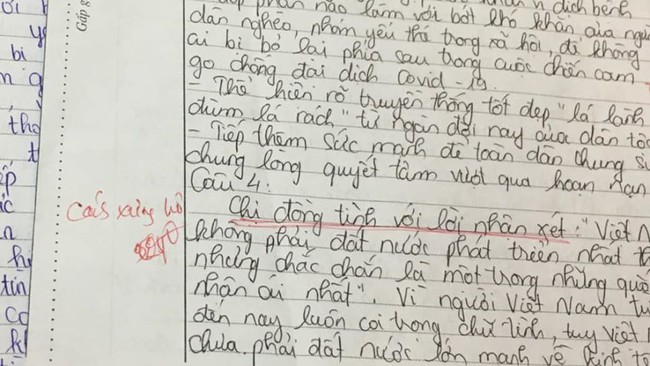 Gấp g
phần nào làm vơi bớt khó khăn của ngư
dân nghèo, nhóm yếu thế trong xã hội, để không
ai bị bỏ lại phía sau trong cuộc chiến cam
go chống đại dịch Covid-19.
- Thể hiện rõ truyền thống tốt đẹp "lá lành
đùm lá rách" từ ngàn đời nay của dân tộc
- Tiếp thêm sức mạnh để toàn dân chung s
chung lòng quyết tâm vượt qua hoạn nạn
Câu 4:
Chi đồng tình với lời nhận xét: "Việt N
không phải đất nước phát triển nhất th
nhưng chắc chắn là một trong những quố
nhân ái nhất". Vì người Việt Nam từ
đến nay luôn coi trọng chữ tình, tuy Việt
chưa phải đất nước lớn mạnh về kinh tế
Cách xưng hô